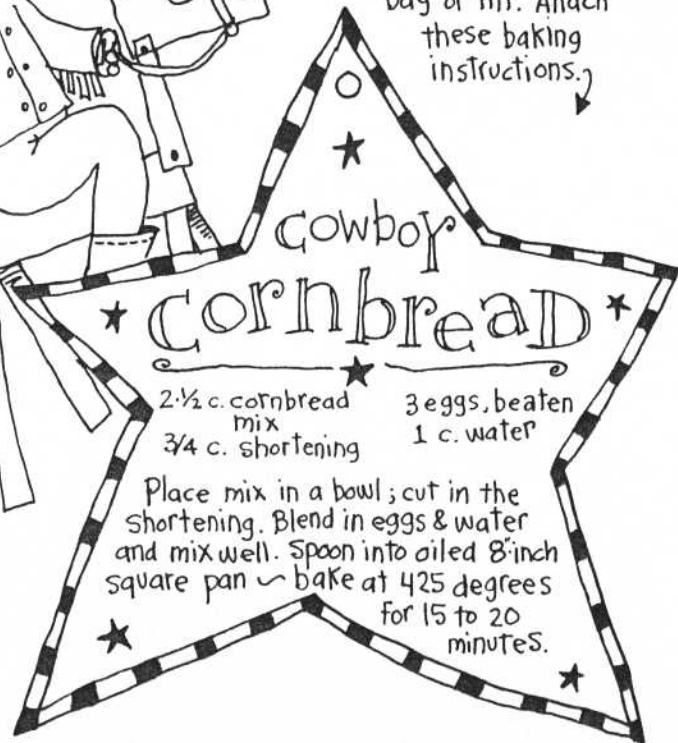 these baking
instructions.
cowboy
cornbreAD
2·½ c. cornbread
mix
3/4 c. shortening
3 eggs, beaten
1 c. water
Place mix in a bowl; cut in the
shortening. Blend in eggs & water
and mix well. Spoon into oiled 8-inch
square pan ~ bake at 425 degrees
for 15 to 20
minutes.